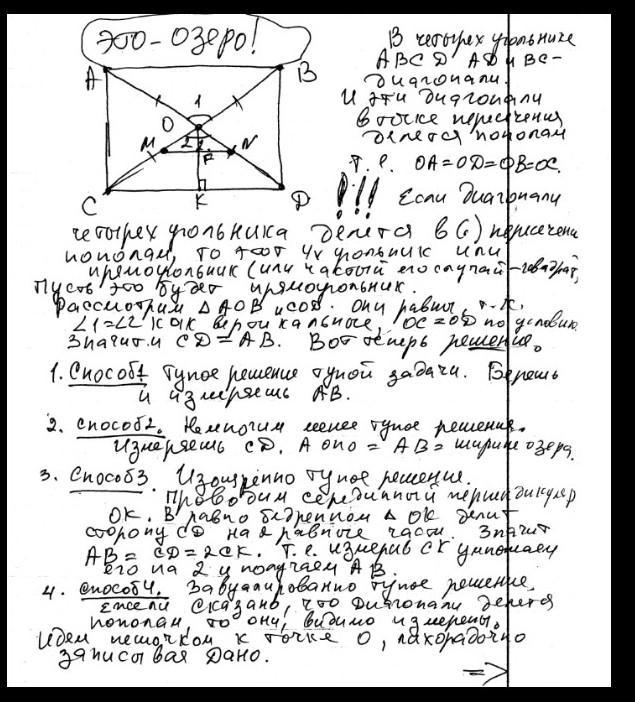 ЭТО - ОЗЕРО!
A
B
1
O
M
2
N
C
K
D
В четырехугольнике
ABCD AD и BC -
диагонали.
И эти диагонали
в точке пересечения
делется пополам
т.е. OA=OD=OB=OC.
!!! Если диагонали
четырехугольника делется в (·) пересечени
пополам, то этот 4х угольник или
прямоугольник (или частый его случай - квадрат,
Пусть это будет прямоугольник.
Рассмотрим △ AOB и COD. они равны, т.к.
∠1=∠2 как вертикальные, OC=OD по условию
Значит и CD=AB. Вот теперь решение.
1. Способ1 Тупое решение тупой задачи. Берешь
и измеряешь AB.
2. Способ2. Немногим менее тупое решение.
Измеряешь CD. А оно = AB = ширине озера.
3. Способ3. Изощренно тупое решение.
Проводим серединный перпендикуляр
OK. В равнобедренном △ OK делит
сторону CD на 2 равные части. Значит
AB = CD = 2CK. Т.е. измерив CK умножаем
его на 2 и получаем AB.
4. Способ4. Завуалированно тупое решение.
Ежели сказано, что диагонали делется
пополам, то они, видимо измерены.
Идем пешочком к точке O, лихорадочно
записывая Дано.
=>